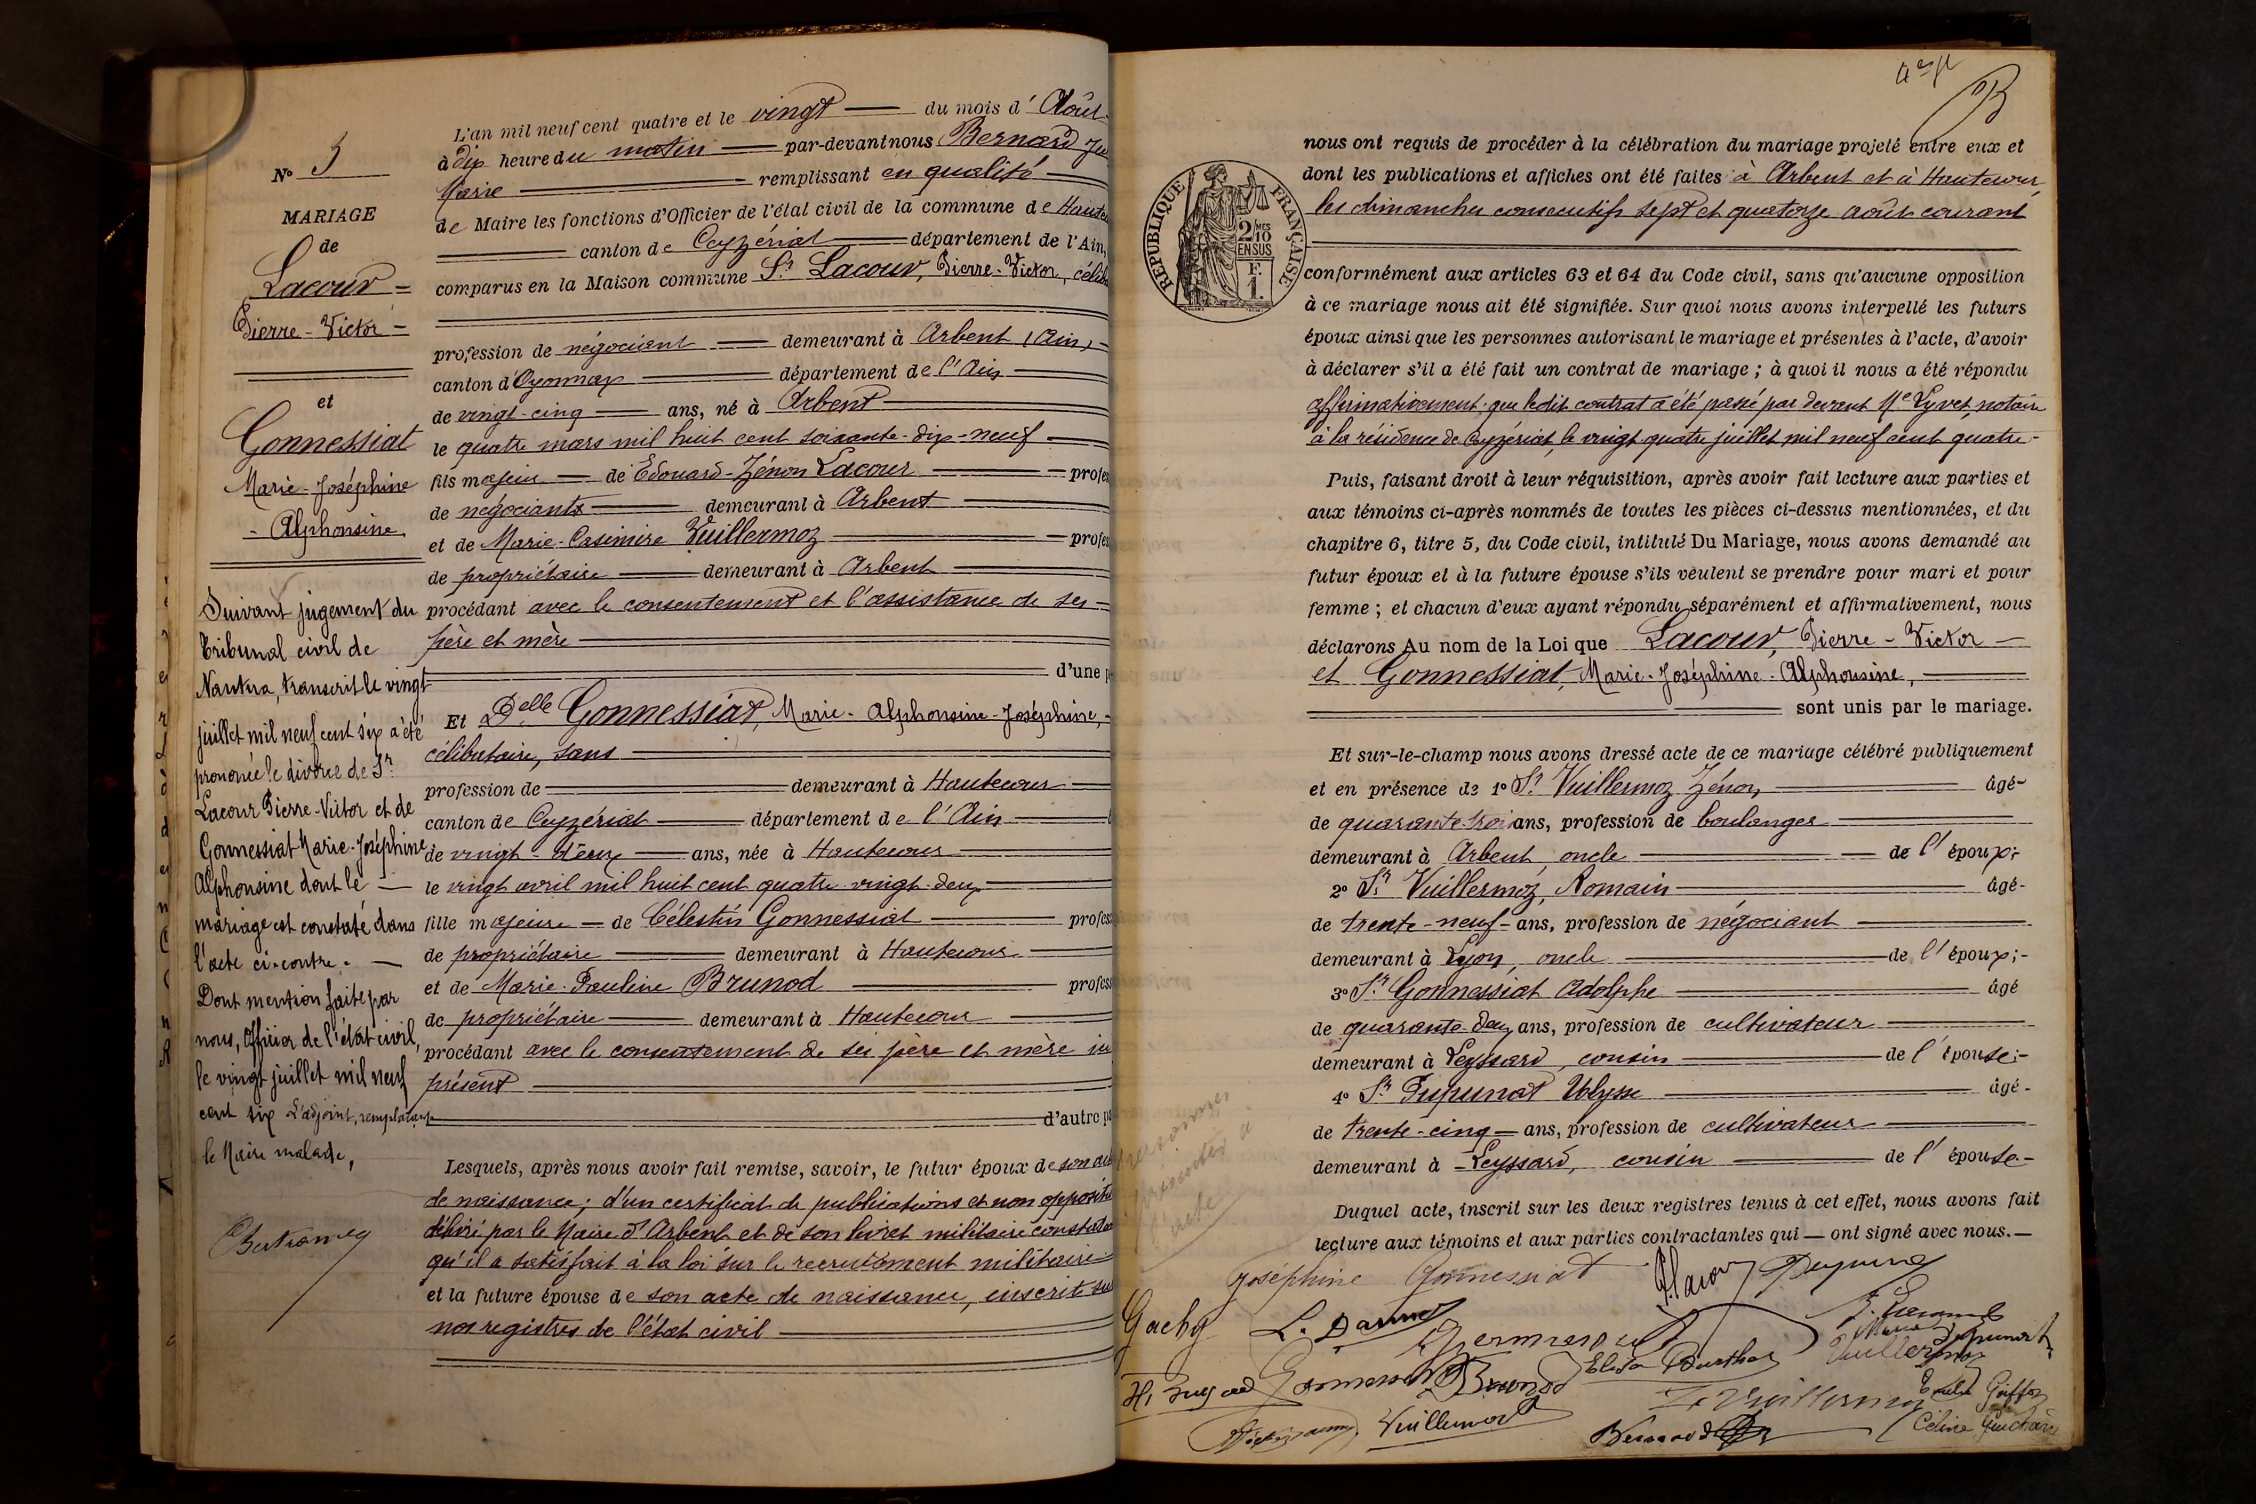 N° 5
MARIAGE
de
Lacour
Pierre - Victor
et
Gonnessiat
Marie-Joséphine
- Alphonsine
Suivant jugement du
Tribunal civil de
Nantua, transcrit le vingt
juillet mil neuf cent six a été
prononcé le divorce de Sr
Lacour Pierre-Victor et de
Gonnessiat Marie-Joséphine
Alphonsine dont le
mariage est constaté dans
l'acte ci-contre.
Dont mention faite par
nous, officier de l'état civil,
le vingt juillet mil neuf
cent six L'adjoint, remplaçant
le Maire malade,
L'an mil neuf cent quatre et le vingt du mois d'Août
à dix heure du matin par-devant nous Bernard
Marie remplissant en qualité
de Maire les fonctions d'Officier de l'état civil de la commune de
canton de Ceyzériat département de l'Ain,
comparus en la Maison commune Sr Lacour, Pierre-Victor,
profession de négociant demeurant à Arbent (Ain)
canton d'Oyonnax département de l'Ain
de vingt-cinq ans, né à Arbent
le quatre mars mil huit cent soixante-dix-neuf
fils majeur de Edouard-Zénon Lacour
de négociants demeurant à Arbent
et de Marie-Casimire Vuillermoz
de propriétaire demeurant à Arbent
procédant avec le consentement et l'assistance de ses
père et mère
d'une
Et Delle Gonnessiat, Marie-Alphonsine-Joséphine,
célibataire, sans
profession de demeurant à Hautecour
canton de Ceyzériat département de l'Ain
de vingt-deux ans, née à Hautecour
le vingt avril mil huit cent quatre vingt-deux
fille majeure de Célestin Gonnessiat
de propriétaire demeurant à Hautecour
et de Marie-Pauline Brunod
de propriétaire demeurant à Hautecour
procédant avec le consentement de ses père et mère
présent
d'autre
Lesquels, après nous avoir fait remise, savoir, le futur époux de son
de naissance; d'un certificat de publications et non
délivré par le Maire d'Arbent et de son livret militaire
qu'il a satisfait à la loi sur le recrutement militaire
et la future épouse de son acte de naissance, inscrit
nos registres de l'état civil
RÉPUBLIQUE FRANÇAISE
2 MES
10
EN SUS
F.
1.
nous ont requis de procéder à la célébration du mariage projeté entre eux et
dont les publications et affiches ont été faites à Arbent et à Hautecour
les dimanches consécutifs sept et quatorze août courant
conformément aux articles 63 et 64 du Code civil, sans qu'aucune opposition
à ce mariage nous ait été signifiée. Sur quoi nous avons interpellé les futurs
époux ainsi que les personnes autorisant le mariage et présentes à l'acte, d'avoir
à déclarer s'il a été fait un contrat de mariage ; à quoi il nous a été répondu
affirmativement; que ledit contrat a été passé par devant Me Lyvet, notaire
à la résidence de Ceyzériat, le vingt quatre juillet mil neuf cent quatre
Puis, faisant droit à leur réquisition, après avoir fait lecture aux parties et
aux témoins ci-après nommés de toutes les pièces ci-dessus mentionnées, et du
chapitre 6, titre 5, du Code civil, intitulé Du Mariage, nous avons demandé au
futur époux et à la future épouse s'ils veulent se prendre pour mari et pour
femme ; et chacun d'eux ayant répondu séparément et affirmativement, nous
déclarons Au nom de la Loi que Lacour, Pierre - Victor
et Gonnessiat, Marie-Joséphine-Alphonsine,
sont unis par le mariage.
Et sur-le-champ nous avons dressé acte de ce mariage célébré publiquement
et en présence de 1° Sr Vuillermoz Zénon, âgé
de quarante trois ans, profession de boulanger
demeurant à Arbent, oncle de l'époux;
2° Sr Vuillermoz, Romain âgé
de trente-neuf ans, profession de négociant
demeurant à Lyon, oncle de l'époux;
3° Sr Gonnessiat Adolphe âgé
de quarante-deux ans, profession de cultivateur
demeurant à Leyssard, cousin de l'épouse;
4° Sr Pupunat Ulysse âgé
de trente-cinq ans, profession de cultivateur
demeurant à Leyssard, cousin de l'épouse
Duquel acte, inscrit sur les deux registres tenus à cet effet, nous avons fait
lecture aux témoins et aux parties contractantes qui ont signé avec nous.
Joséphine Gonnessiat
Gachy
Brunod
Vuillermoz
Bernard
Céline